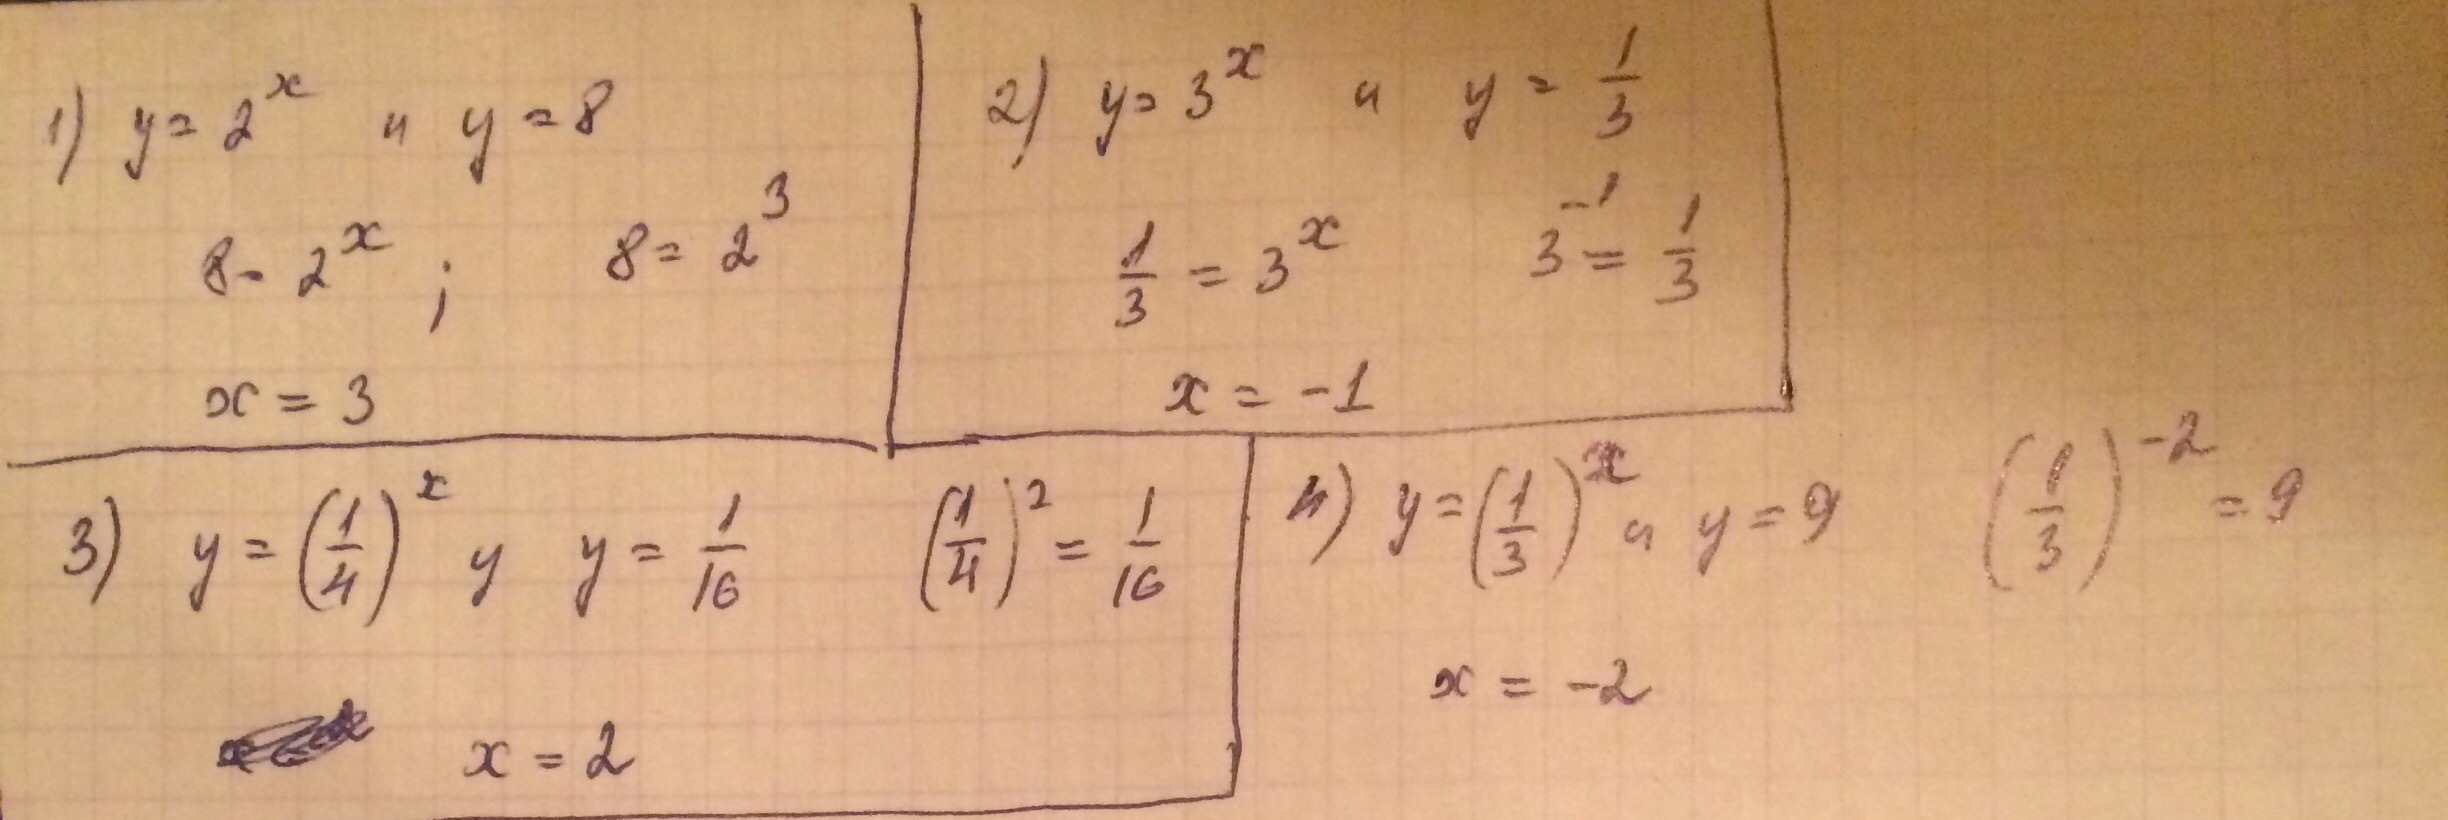 1) y = 2^x и y = 8
8 = 2^x ; 8 = 2^3
x = 3
2) y = 3^x и y = 1/3
1/3 = 3^x 3^-1 = 1/3
x = -1
3) y = (1/4)^x и y = 1/16 (1/4)^2 = 1/16
x = 2
4) y = (1/3)^x и y = 9 (1/3)^-2 = 9
x = -2